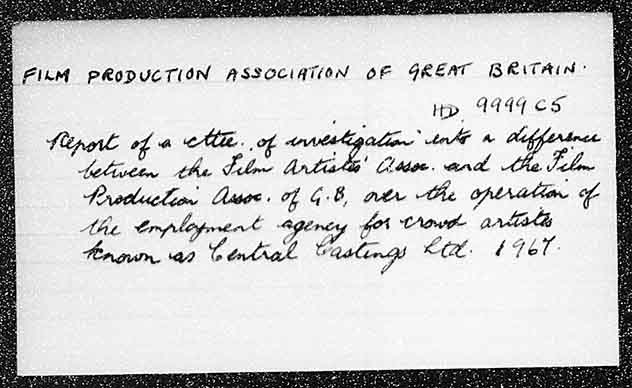 FILM PRODUCTION ASSOCIATION OF GREAT BRITAIN.
HD 9999 C5
Report of a cttee. of investigation into a difference
between the Film Artistes' Assoc. and the Film
Production Assoc. of G.B, over the operation of
the employment agency for crowd artistes
known as Central Castings Ltd. 1967.